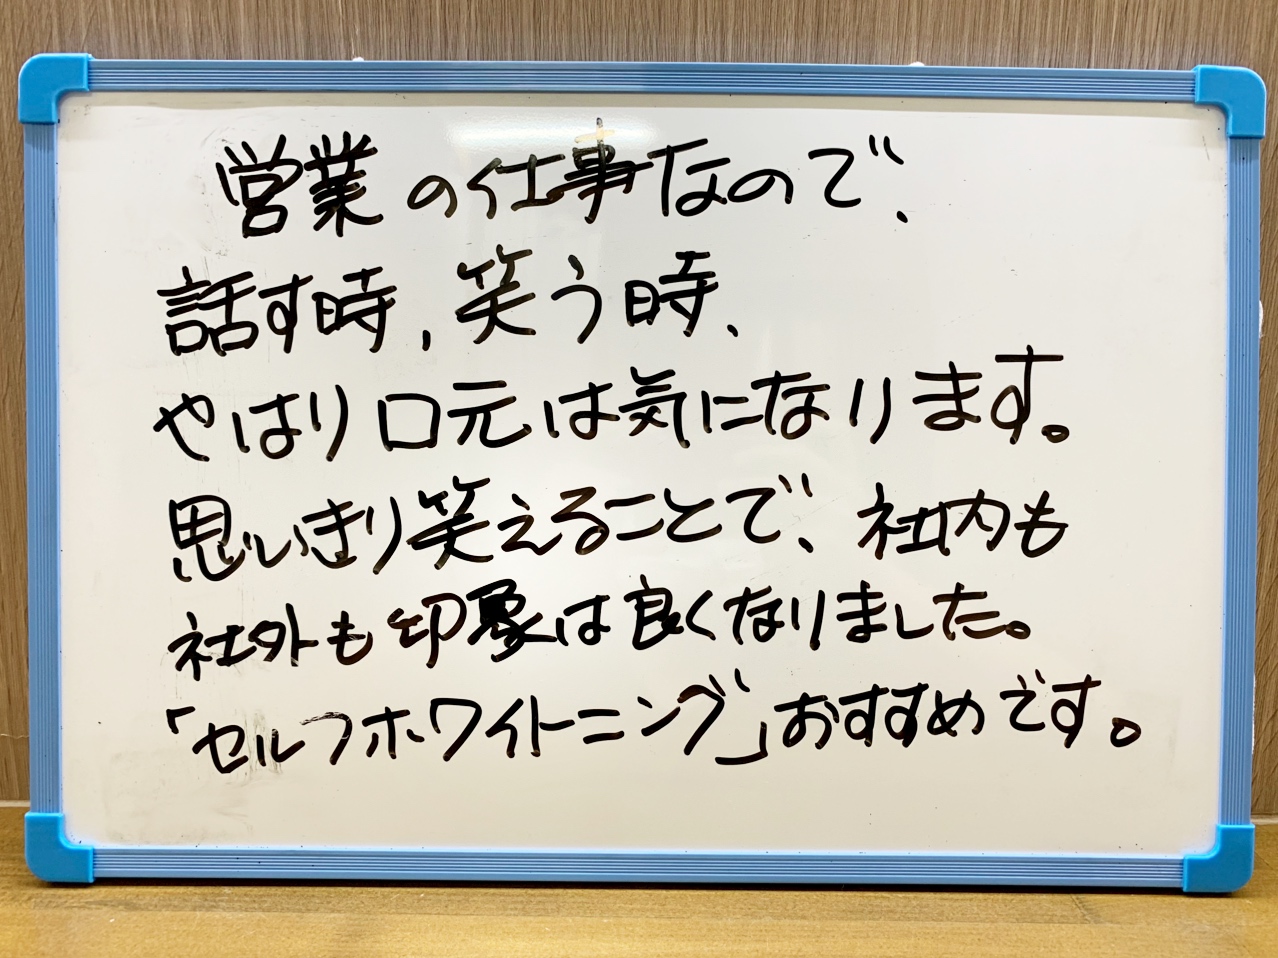 営業の仕事なので、
話す時、笑う時、
やはり口元は気になります。
思いきり笑えることで、社内も
社外も印象は良くなりました。
「セルフホワイトニング」おすすめです。